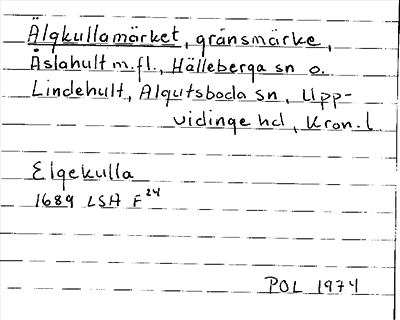 Älgkullamärket, gränsmärke,
Åslahult m.fl., Hälleberga sn o.
Lindehult, Algutsboda sn, Upp-
vidinge hd, Kron. l
Elgekulla
1689 LSA F 24
POL 1974